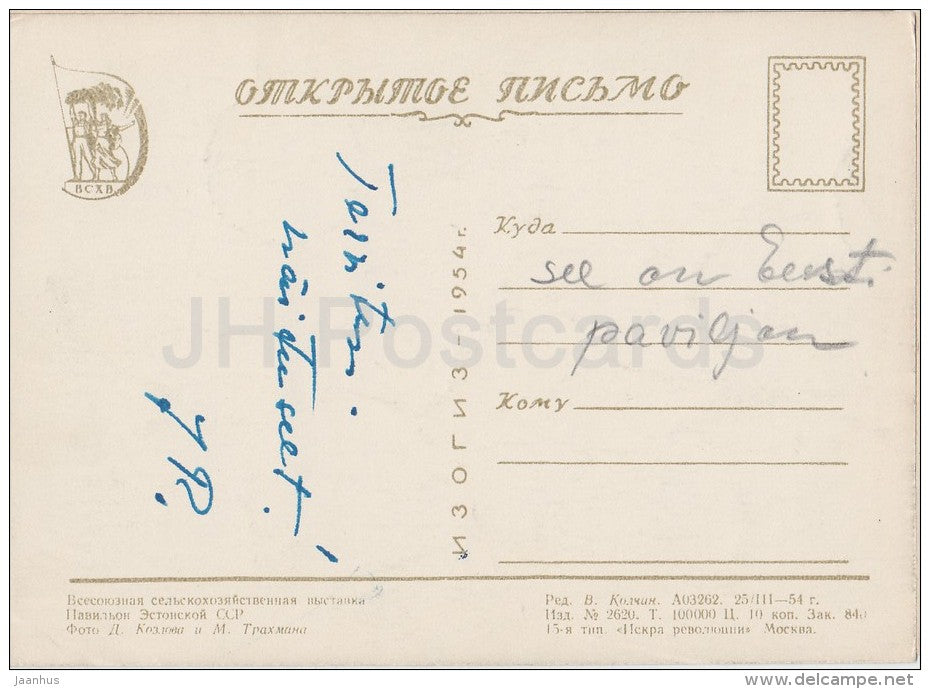 ОТКРЫТОЕ ПИСЬМО
ВСХВ
Куда
see on Eesti
paviljon
Кому
Tervitusi
näituselt!
J R.
ИЗОГИЗ-1954 г.
Всесоюзная сельскохозяйственная выставка
Павильон Эстонской ССР
Фото Д. Козлова и М. Трахмана
Ред. В. Колчин. А03262. 25/III—54 г.
Изд. № 2620. Т. 100000 Ц. 10 коп. Зак. 840
15-я тип. «Искра революции» Москва.
JH Postcards
Jaanhus
www.delcampe.net